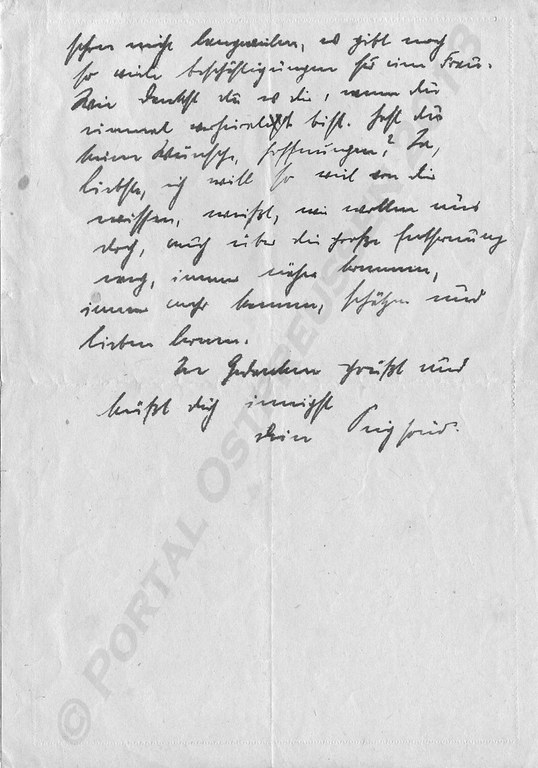 schon nicht langweilen, es gibt noch
so viele beschäftigungen für eine Frau.
Wie denkst du es dir, wenn du
einmal verheiratet bist. Hast du
keine Wünsche, Hoffnungen? Ja,
liebste, ich will so viel von dir
wissen, weißt, wir wollen uns
doch, auch über die große Entfernung
weg, immer näher kommen,
immer mehr kennen, schätzen und
lieben lernen.
In Gedanken grüßt und
küßt dich innigst
dein Siegfried.
© PORTAL OSTPREUSSEN 2018